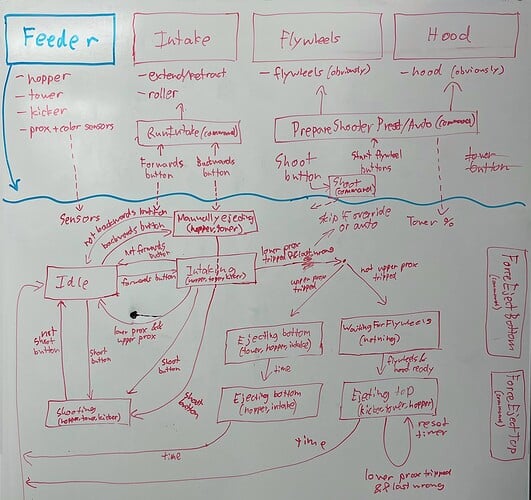 Feeder
Intake
Flywheels
Hood
- hopper
- tower
- kicker
- prox + color sensors
- extend/retract
- roller
- flywheels (obviously)
- hood (obviously)
RunIntake (command)
PrepareShooter Preset/Auto (command)
Forwards
button
Backwards
button
Shoot
button
Start flywheel
buttons
Shoot
(command)
tower
button
Sensors
skip if override
or auto
Tower %
not backwards button
backwards button
Manually ejecting
(hopper, tower)
not forwards
button
forwards button
Idle
Intaking
(hopper, tower, kicker)
lower prox
tripped & last wrong
upper prox
tripped
not upper prox
tripped
lower prox &
upper prox
not
shoot
button
shoot
button
shoot
button
shoot
button
Shooting
(hopper, tower, kicker)
Ejecting bottom
(tower, hopper, intake)
time
Ejecting bottom
(hopper, intake)
Waiting For Flywheels
(nothing)
flywheels &
hood ready
Ejecting top
(kicker, tower, hopper)
reset
timer
time
time
lower prox tripped
& last wrong
ForceEjectBottom
(command)
ForceEjectTop
(command)